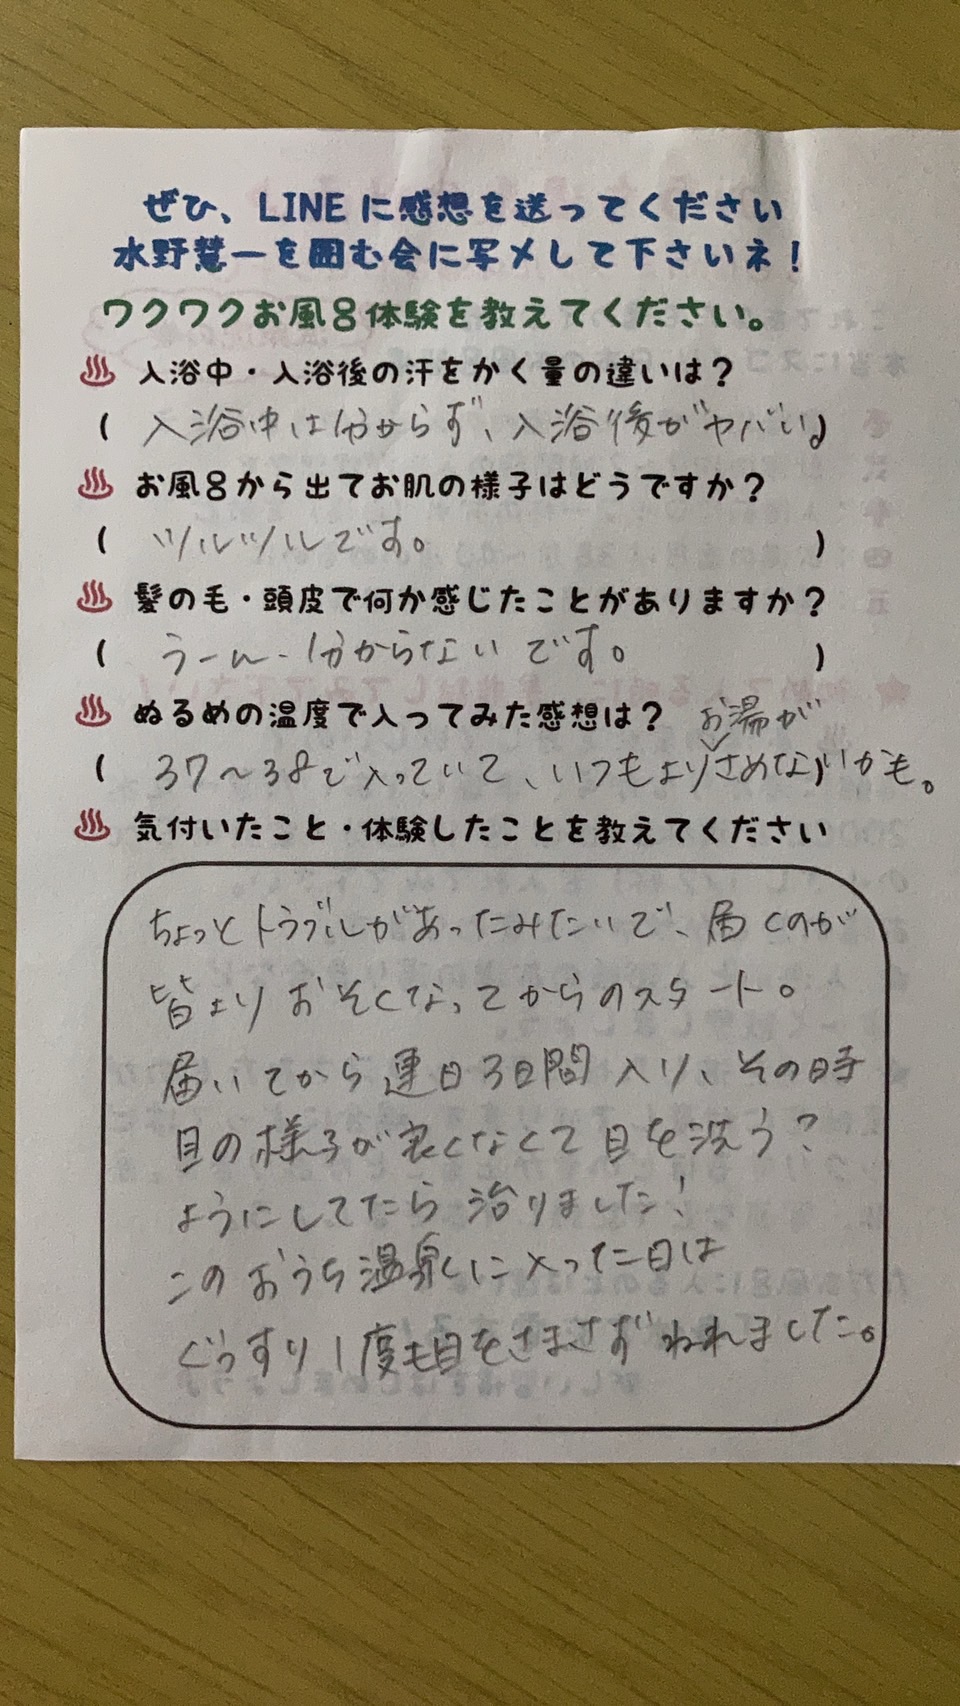 ぜひ、LINEに感想を送ってください
水野慧一を囲む会に写メして下さいネ！
ワクワクお風呂体験を教えてください。
♨ 入浴中・入浴後の汗をかく量の違いは？
( 入浴中は分からず、入浴後がヤバい。)
♨ お風呂から出てお肌の様子はどうですか？
( ツルツルです。 )
♨ 髪の毛・頭皮で何か感じたことがありますか？
( うーん、分からないです。 )
♨ ぬるめの温度で入ってみた感想は？
( 37〜38で入っていて、いつもよりお湯がさめないかも。)
♨ 気付いたこと・体験したことを教えてください
ちょっとトラブルがあったみたいで、届くのが
皆よりおそくなってからのスタート。
届いてから連日3日間入り、その時
目の様子が良くなくて目を洗う？
ようにしてたら治りました！
このおうち温泉に入った日は
ぐっすり1度も目をさまさずねれました。